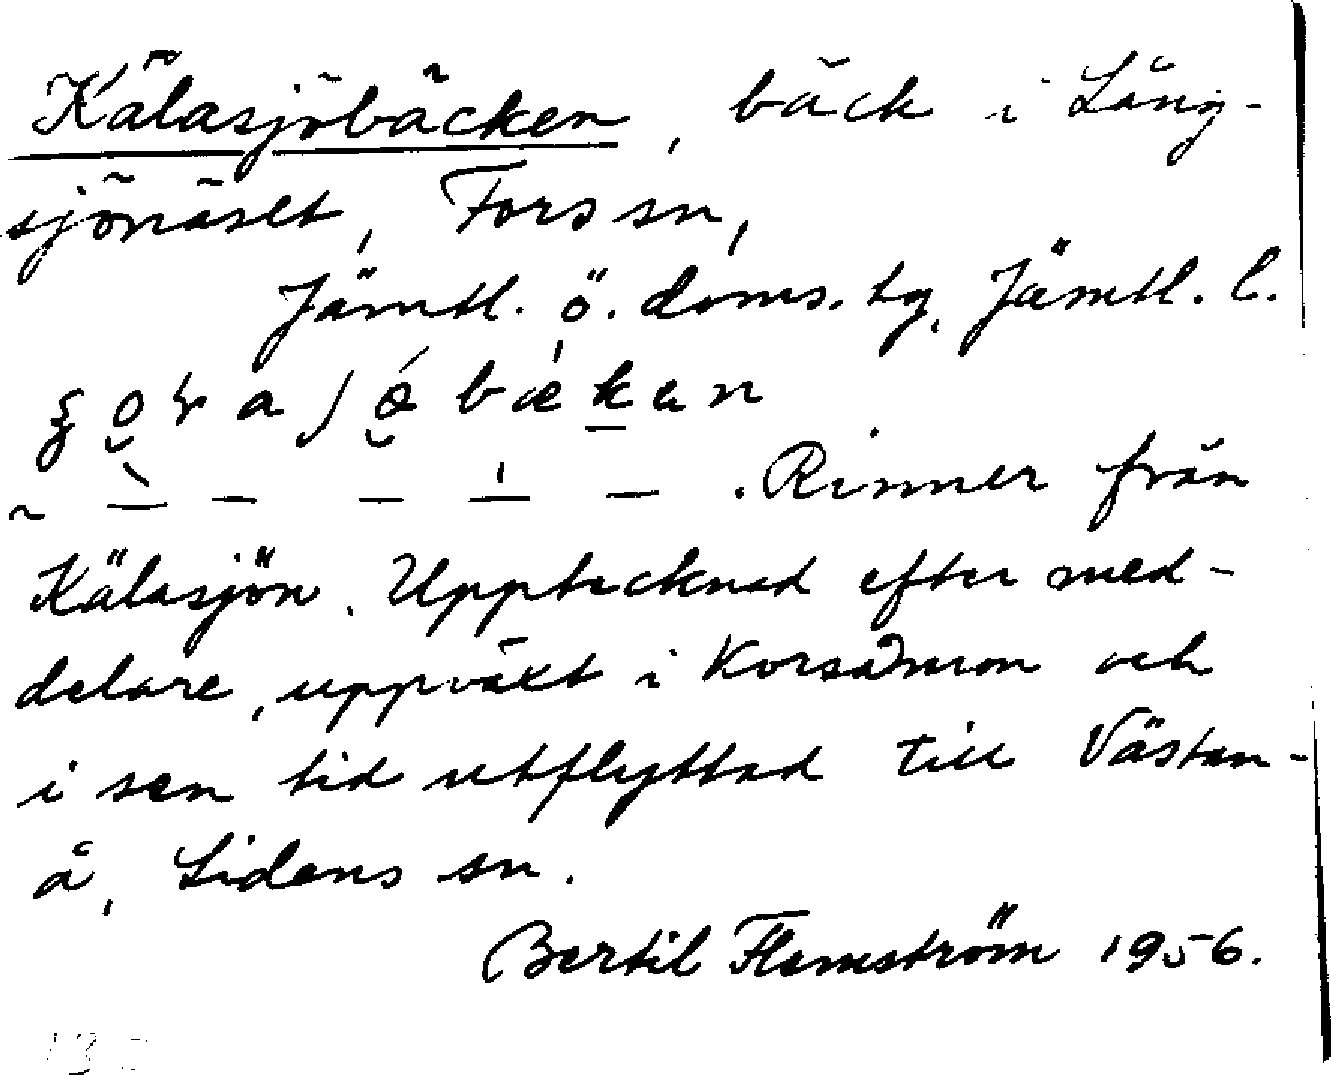 Kälasjöbäcken, bäck i Lång-
sjönäset, Fors sn,
Jämtl. ö. doms. hg. Jämtl. l.
. Rinner från
Kälasjön. Upptecknad efter med-
delare, uppväxt i Korsåmon och
i sen tid utflyttad till Västan-
å, Lidens sn.
Bertil Flemström 1956.